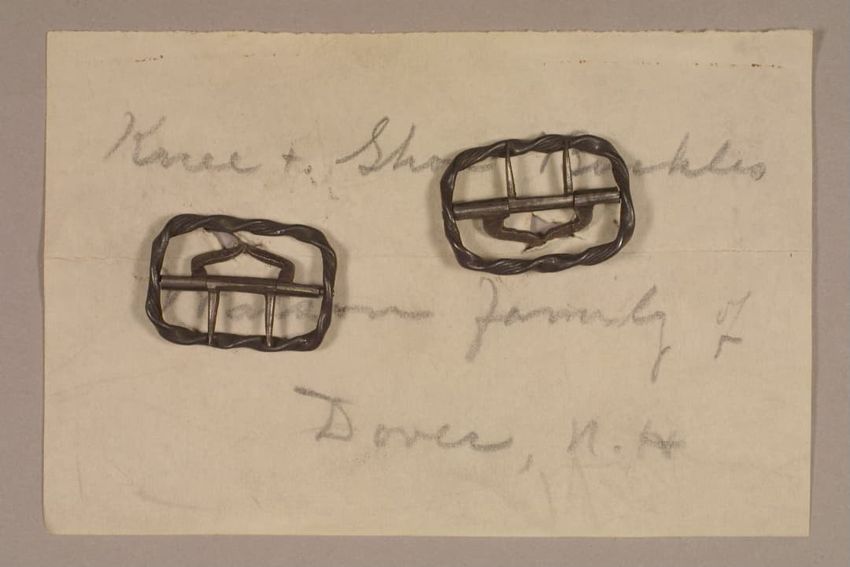 Knee + Shoe Buckles
Family of
Dover, N.H